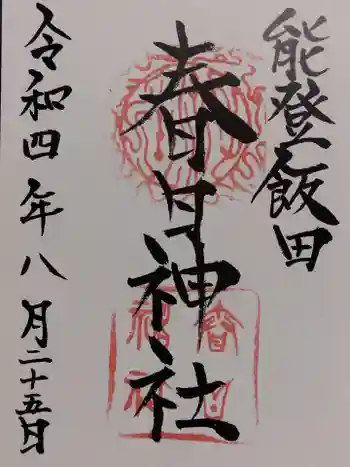 能登飯田
春日神社
令和四年八月二十五日